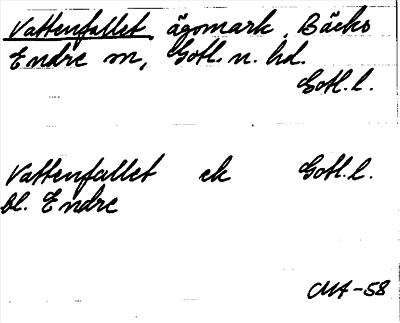 Vattenfallet, ägomark, Bäcks
Endre sn, Gotl. n. hd.
Gotl. l.
Vattenfallet ek Gotl. l.
bl. Endre
CMA-58